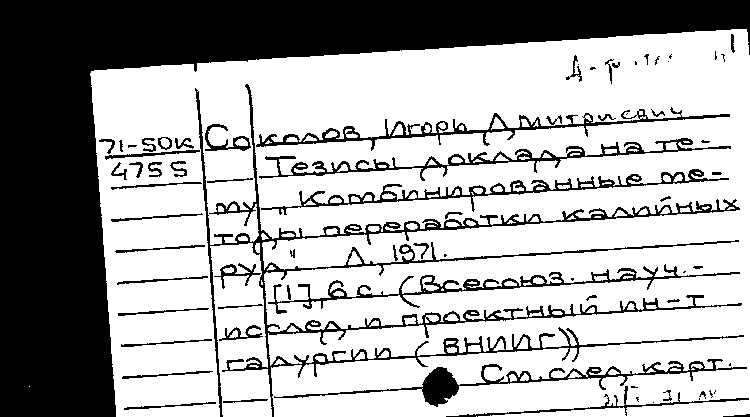 71-50к Соколов, Игорь Дмитриевич
4755 Тезисы доклада на те-
му „Комбинированные ме-
тоды переработки калийных
руд." Л., 1971.
[1], 6 с. (Всесоюз. науч.-
исслед. и проектный ин-т
галургии (ВНИИГ))
См. след. карт.